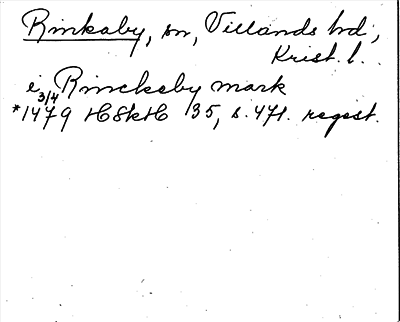 Rinkaby, sn, Villands hd,
Krist. l.
i Rinckeby mark
3/4
*1479 HSkH 35, s. 471. regest.